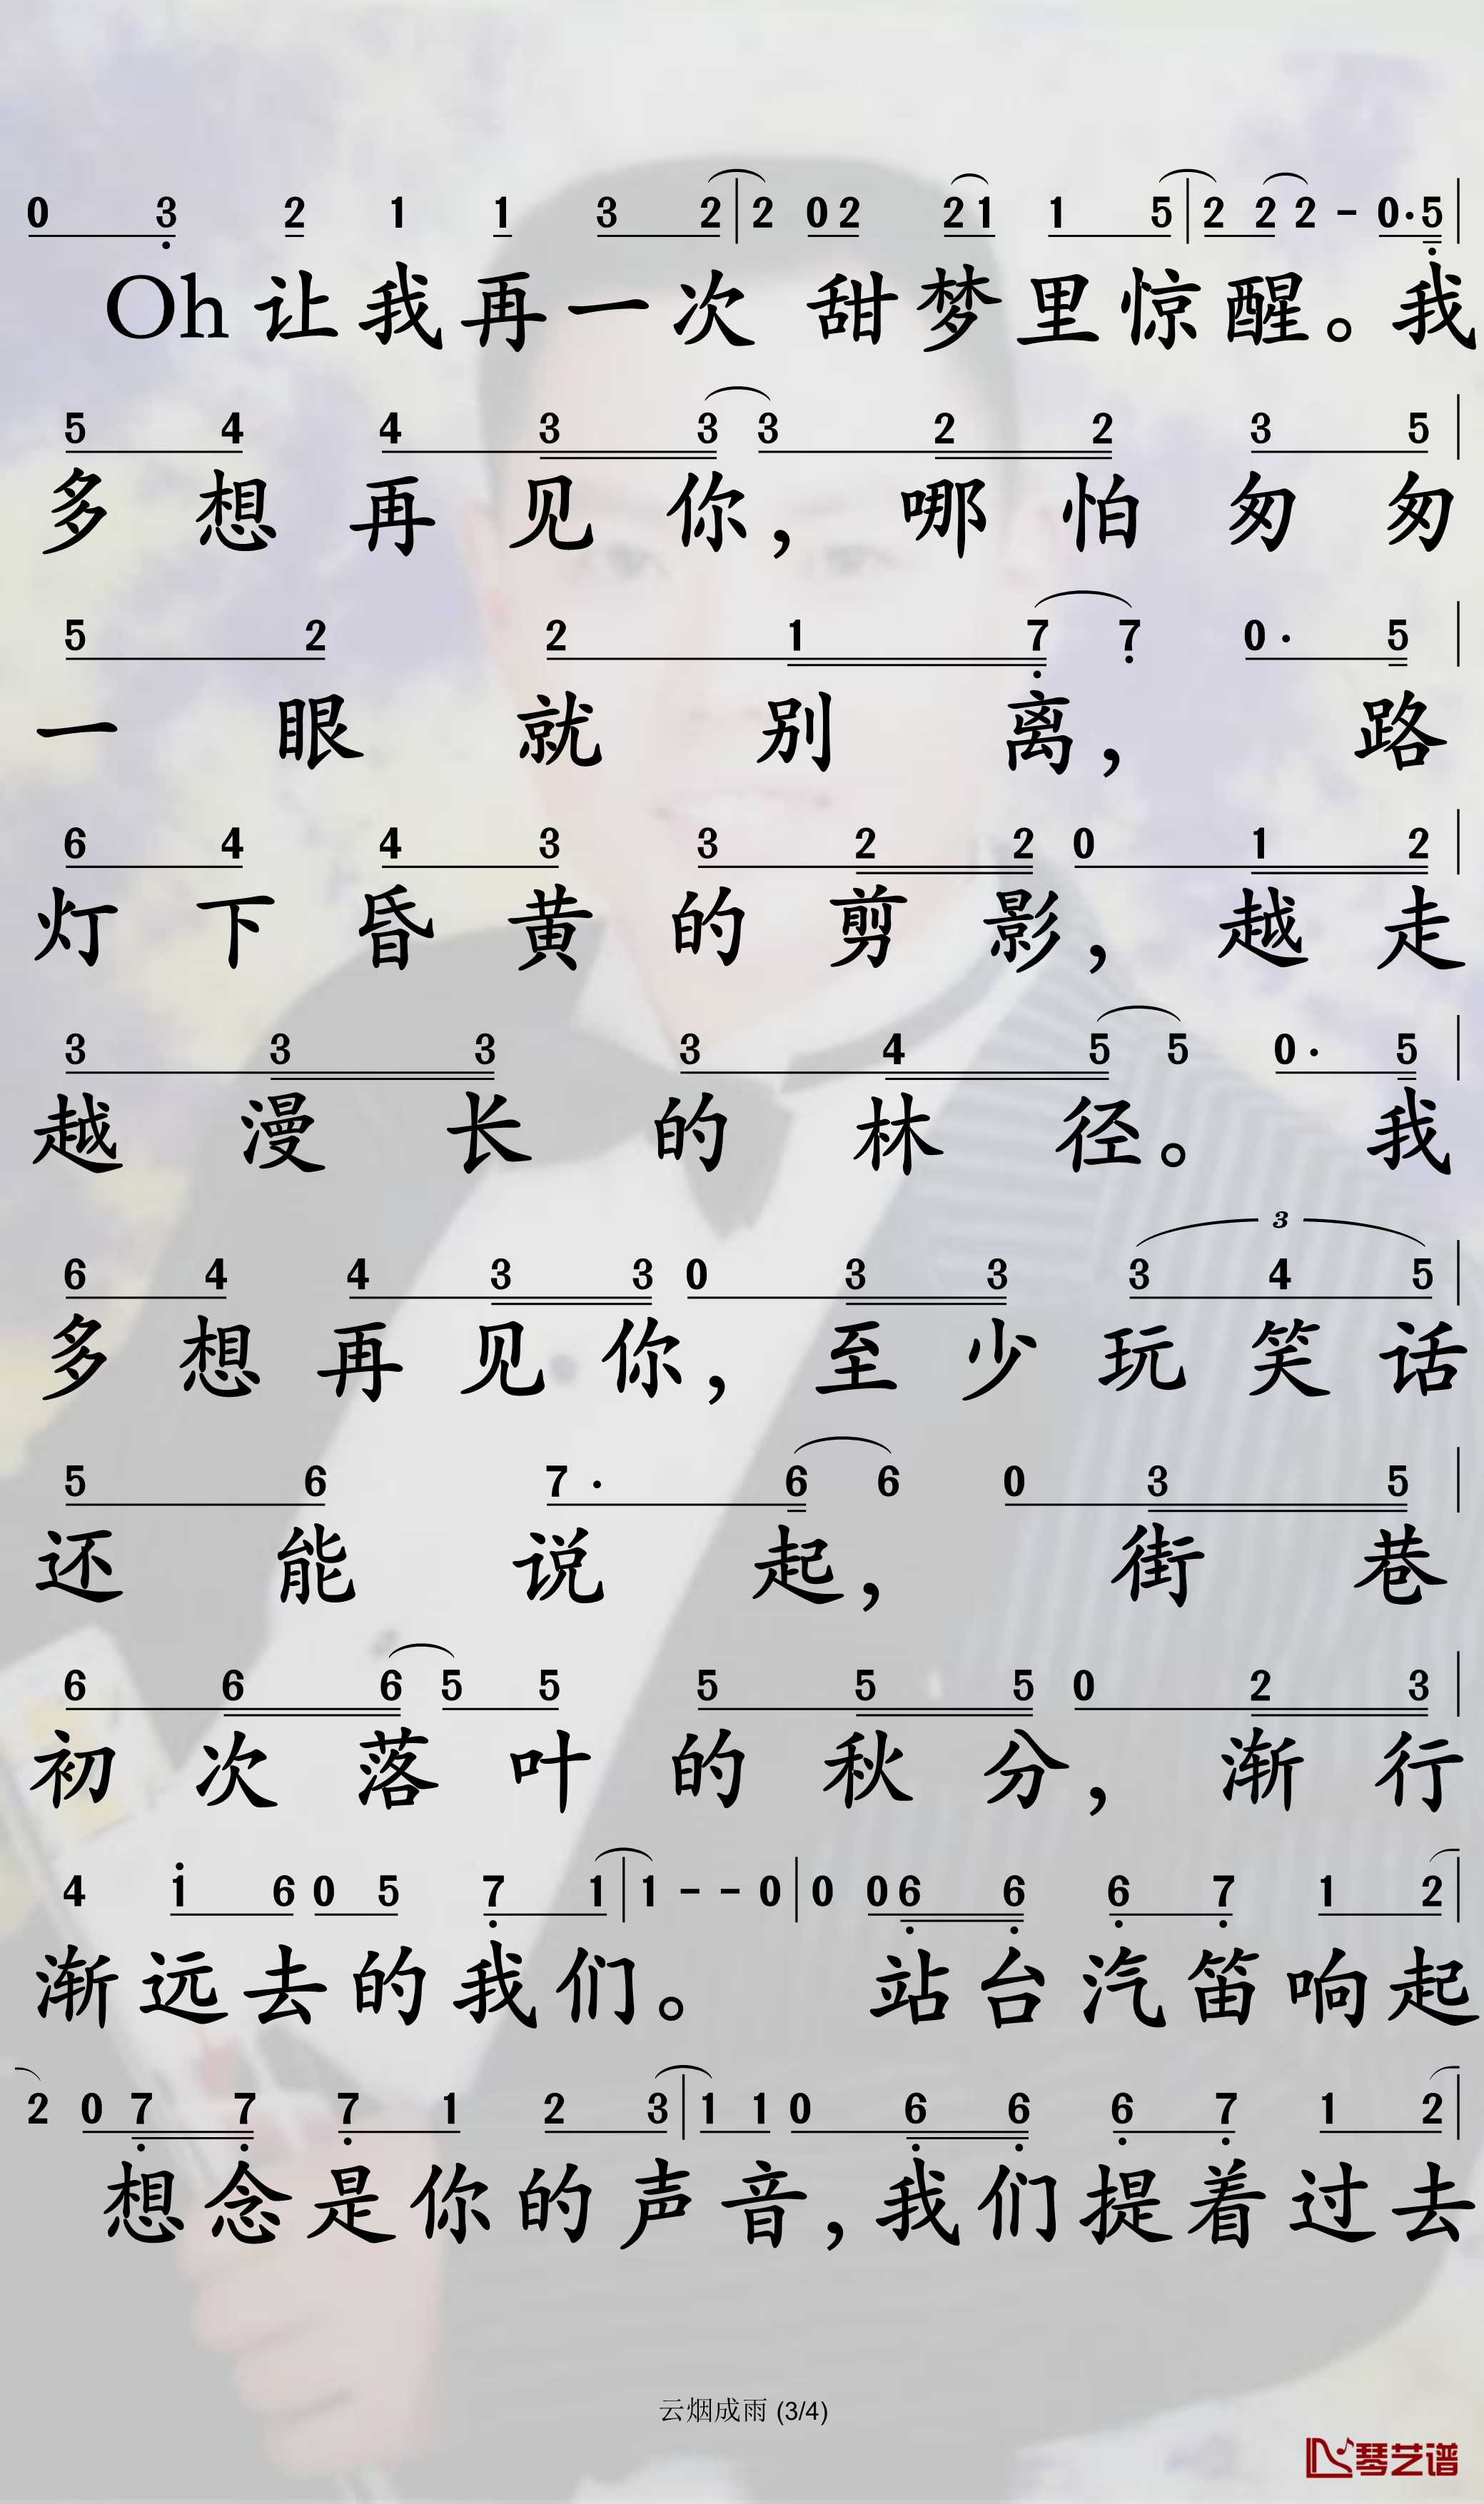 0 3 2 1 1 3 2 | 2 0 2 2 1 1 5 | 2 2 2 - 0 · 5 |
Oh 让我再一次 甜梦里惊醒。我
5 4 4 3 3 3 2 2 3 5 |
多想再见你，哪怕匆匆
5 2 2 1 7 7 0 · 5 |
一眼就别离，路
6 4 4 3 3 2 2 0 1 2 |
灯下昏黄的剪影，越走
3 3 3 3 4 5 5 0 · 5 |
越漫长的林径。我
3
6 4 4 3 3 0 3 3 3 4 5 |
多想再见你，至少玩笑话
5 6 7 · 6 6 0 3 5 |
还能说起，街巷
6 6 6 5 5 5 5 5 0 2 3 |
初次落叶的秋分，渐行
4 1 6 0 5 7 1 | 1 - - 0 | 0 0 6 6 6 7 1 2 |
渐远去的我们。站台汽笛响起
2 0 7 7 7 1 2 3 | 1 1 0 6 6 6 7 1 2 |
想念是你的声音，我们提着过去
云烟成雨 (3/4)
琴艺谱